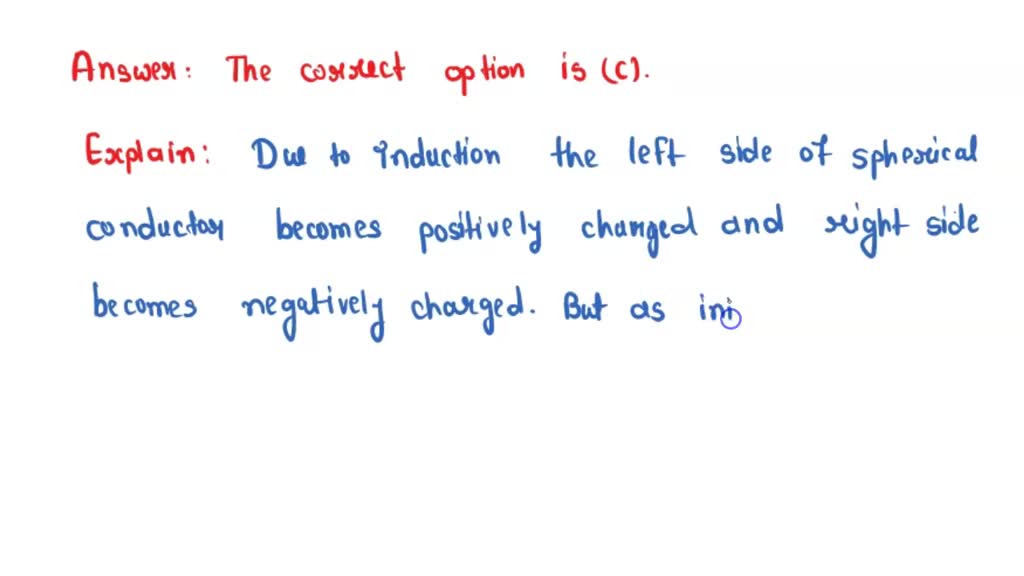 Answer: The correct option is (c).
Explain: Due to induction the left side of spherical
conductor becomes positively changed and right side
becomes negatively charged. But as ini